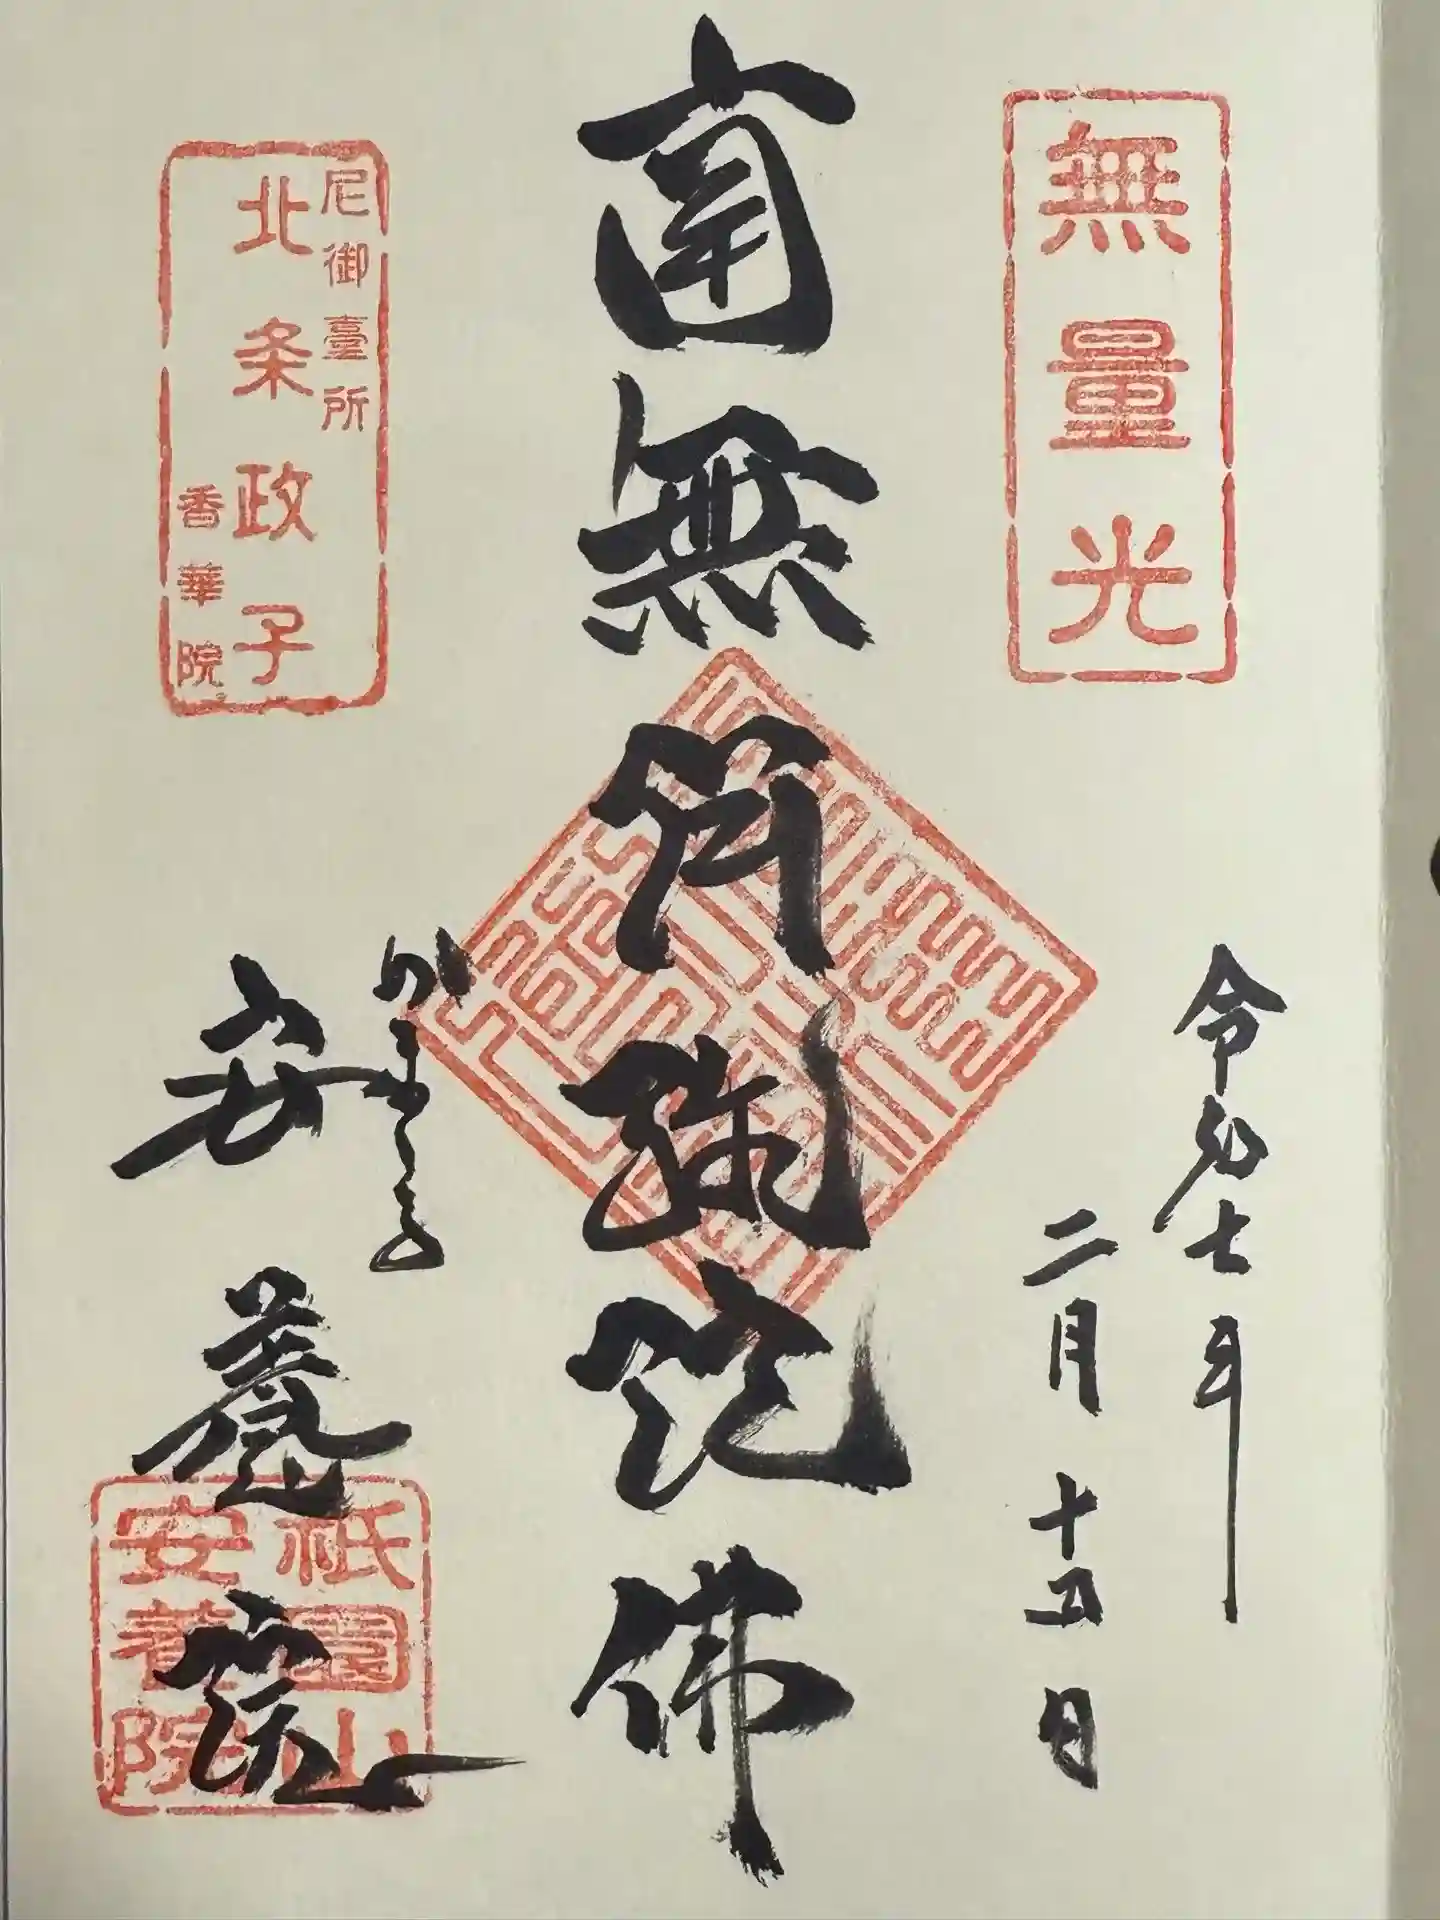 無量光
令和七年
二月十五日
南無阿弥陀佛
尼御臺所
北条政子
香華院
かまくら
安養院
祇園山
安養院